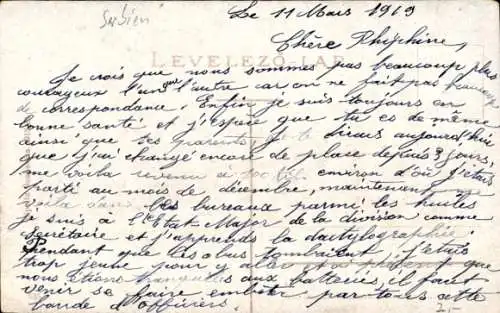 Serbien
Le 11 Mars 1919
Chère Rhiphine,
LEVELEZŐ-LAP
Je crois que nous sommes pas beaucoup plus
courageux l'un que l'autre car on ne fait pas beaucoup
de correspondance. Enfin je suis toujours en
bonne santé et j'espère que tu es de même
ainsi que tes parents. Je te dirais aujourd'hui
que j'ai changé encore de place depuis 3 jours,
me voila revenu à 100 environ d'où j'étais
parté au mois de décembre, maintenant me
voila dans les bureaux parmi les huiles
je suis à l'Etat-Major de la division comme
secrétaire et j'apprends la dactylographie.
Pendant que les obus tombaient j'étais
trop jeune pour y aller
nous étions tranquilles aux batteries, il faut
venir se faire embêter par toute cette
bande d'officiers.
2.-